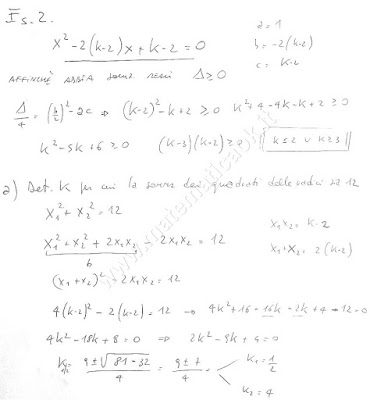 Es. 2.
x² - 2(k-2)x + k-2 = 0
a = 1
b = -2(k-2)
c = k-2
AFFINCHÉ ABBIA soluz reali Δ≥0
Δ/4 = (b/2)² - ac ⇒ (k-2)² - k+2 ≥0 k²+4-4k-k+2 ≥0
k² - 5k + 6 ≥0 (k-3)(k-2) ≥0 || k≤2 ∨ k≥3 ||
a) Det. K per cui la somma dei quadrati delle radici sia 12
x₁² + x₂² = 12
x₁x₂ = k-2
x₁² + x₂² + 2x₁x₂ - 2x₁x₂ = 12
x₁+x₂ = 2(k-2)
(x₁+x₂)² - 2x₁x₂ = 12
4(k-2)² - 2(k-2) = 12 → 4k²+16-16k-2k+4-12=0
4k² - 18k + 8 = 0 ⇒ 2k² - 9k + 4 = 0
k = (9 ± √(81-32))/4 = (9 ± 7)/4
k₁ = 1/2
k₂ = 4
www.matematicaok.it